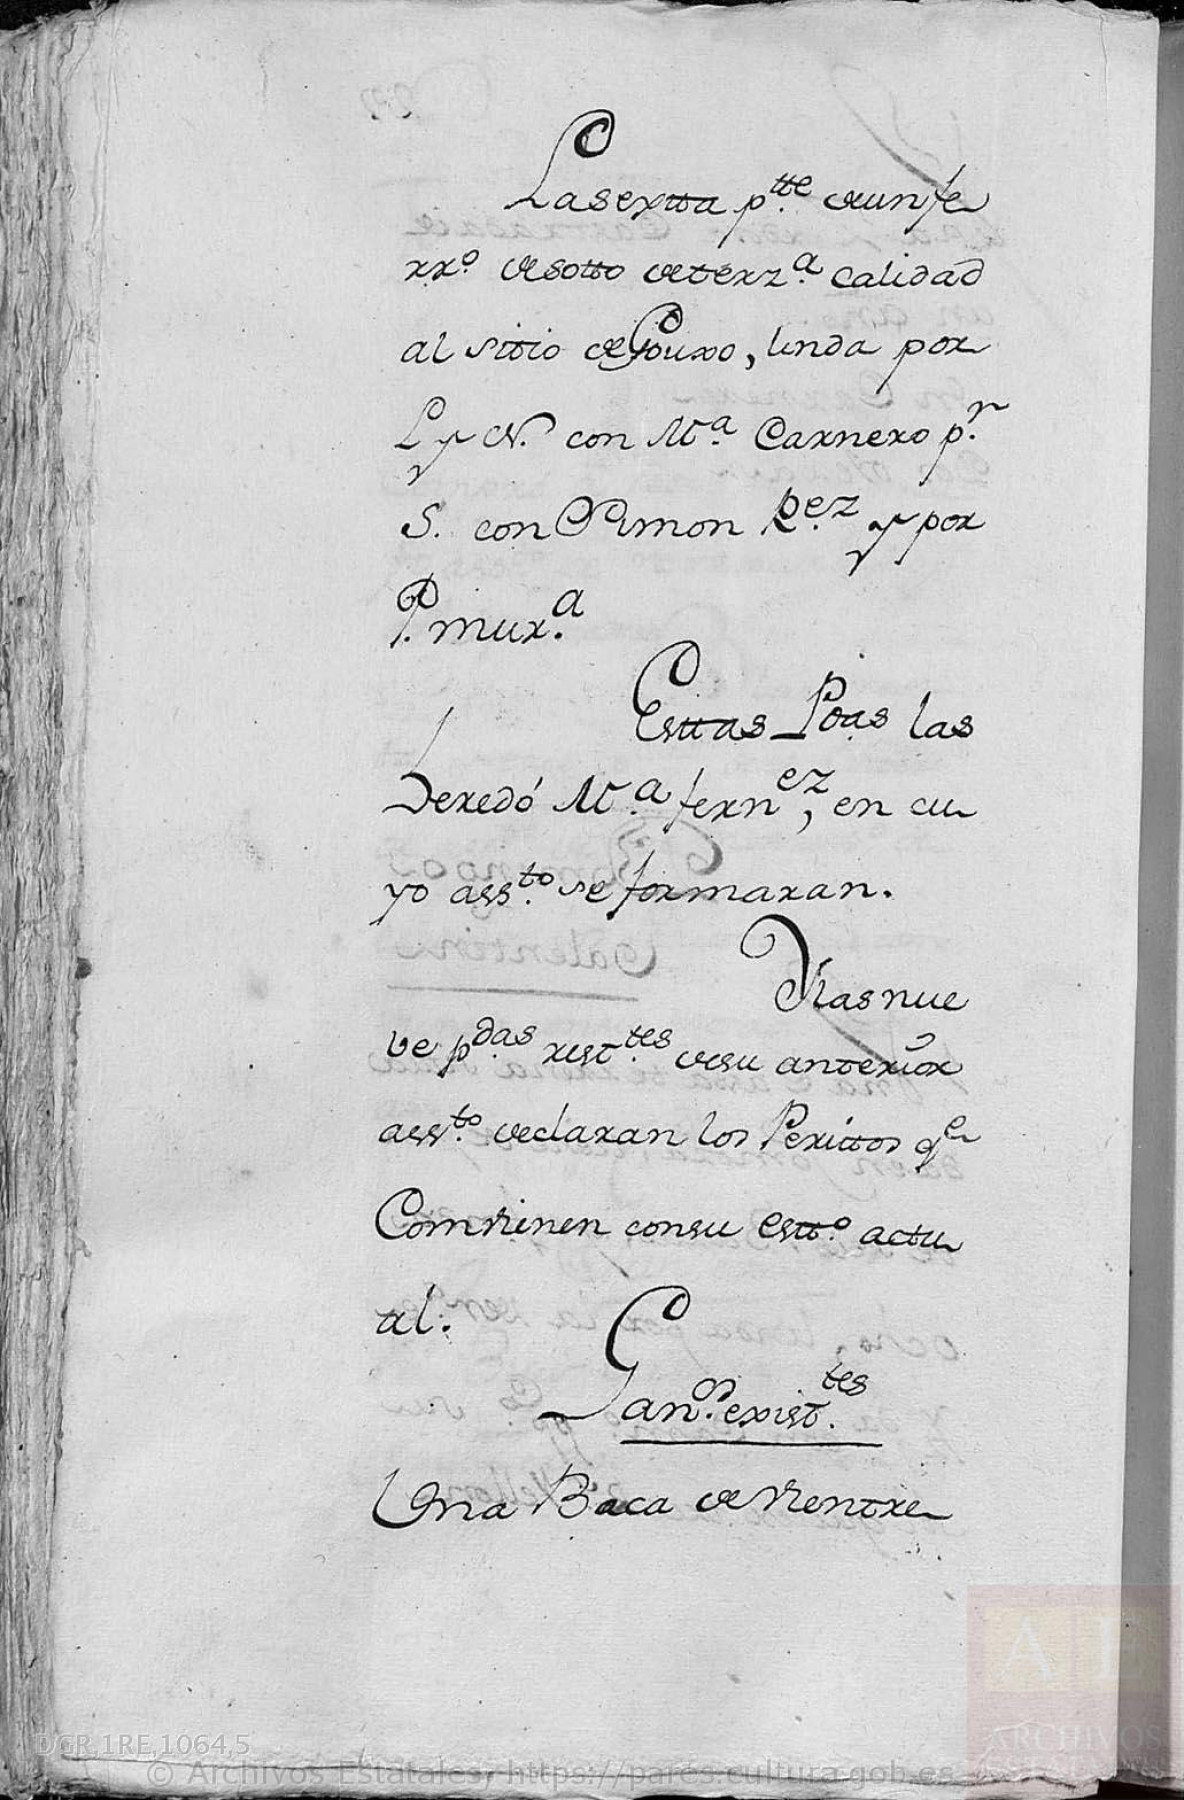 La sextta p.tte de un fe
rr.o de sotto de terz.a calidad
al sittio de Gouxo, linda por
L. y N. con M.a Carnero p.r
S. con Simon Rez y por
P. mur.a
Esttas Pdas las
heredó M.a fernez, en cu
yo ass.to se formaran.
Y las nue
be p.das rest.tes de su anterior
ass.to declaran los Perittos qe
Combienen con su estt.o actu
al.
Gan.o exist.tes
Una Baca de vientre
DGR,1RE,1064,5
© Archivos Estatales, https://pares.cultura.gob.es
AE
ARCHIVOS
ESTATALES